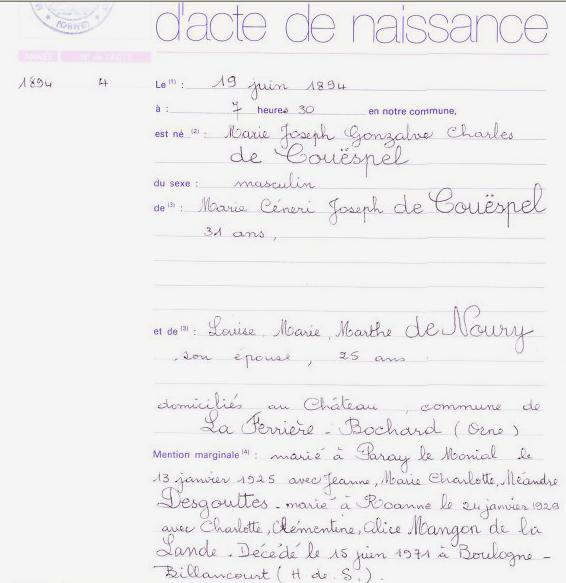 d'acte de naissance
ANNÉE N° de l'ACTE
1894 4 Le (1) : 19 juin 1894
à : 7 heures 30 en notre commune,
est né (2) : Marie Joseph Gonzalve Charles
de Couëspel
du sexe : masculin
de (3) : Marie Céneri Joseph de Couëspel
31 ans,
et de (3) : Louise, Marie, Marthe de Noury
son épouse, 25 ans
domiciliés au Château, commune de
La Ferrière-Bochard (Orne)
Mention marginale (4) : marié à Paray le Monial le
13 janvier 1925 avec Jeanne, Marie Charlotte, Méandre
Desgouttes - marié à Roanne le 24 janvier 1929
avec Charlotte, Clémentine, Alice Mangon de la
Lande. Décédé le 15 juin 1971 à Boulogne-
Billancourt (H de S.).